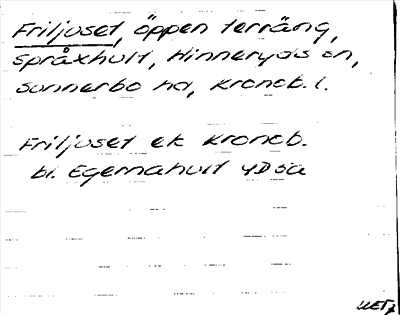 Friljuset, öppen terräng,
Språxhult, Hinneryds sn,
Sunnerbo hd, Kronob. l.
Friljuset ek Kronob.
bl. Egernahult 4D5a